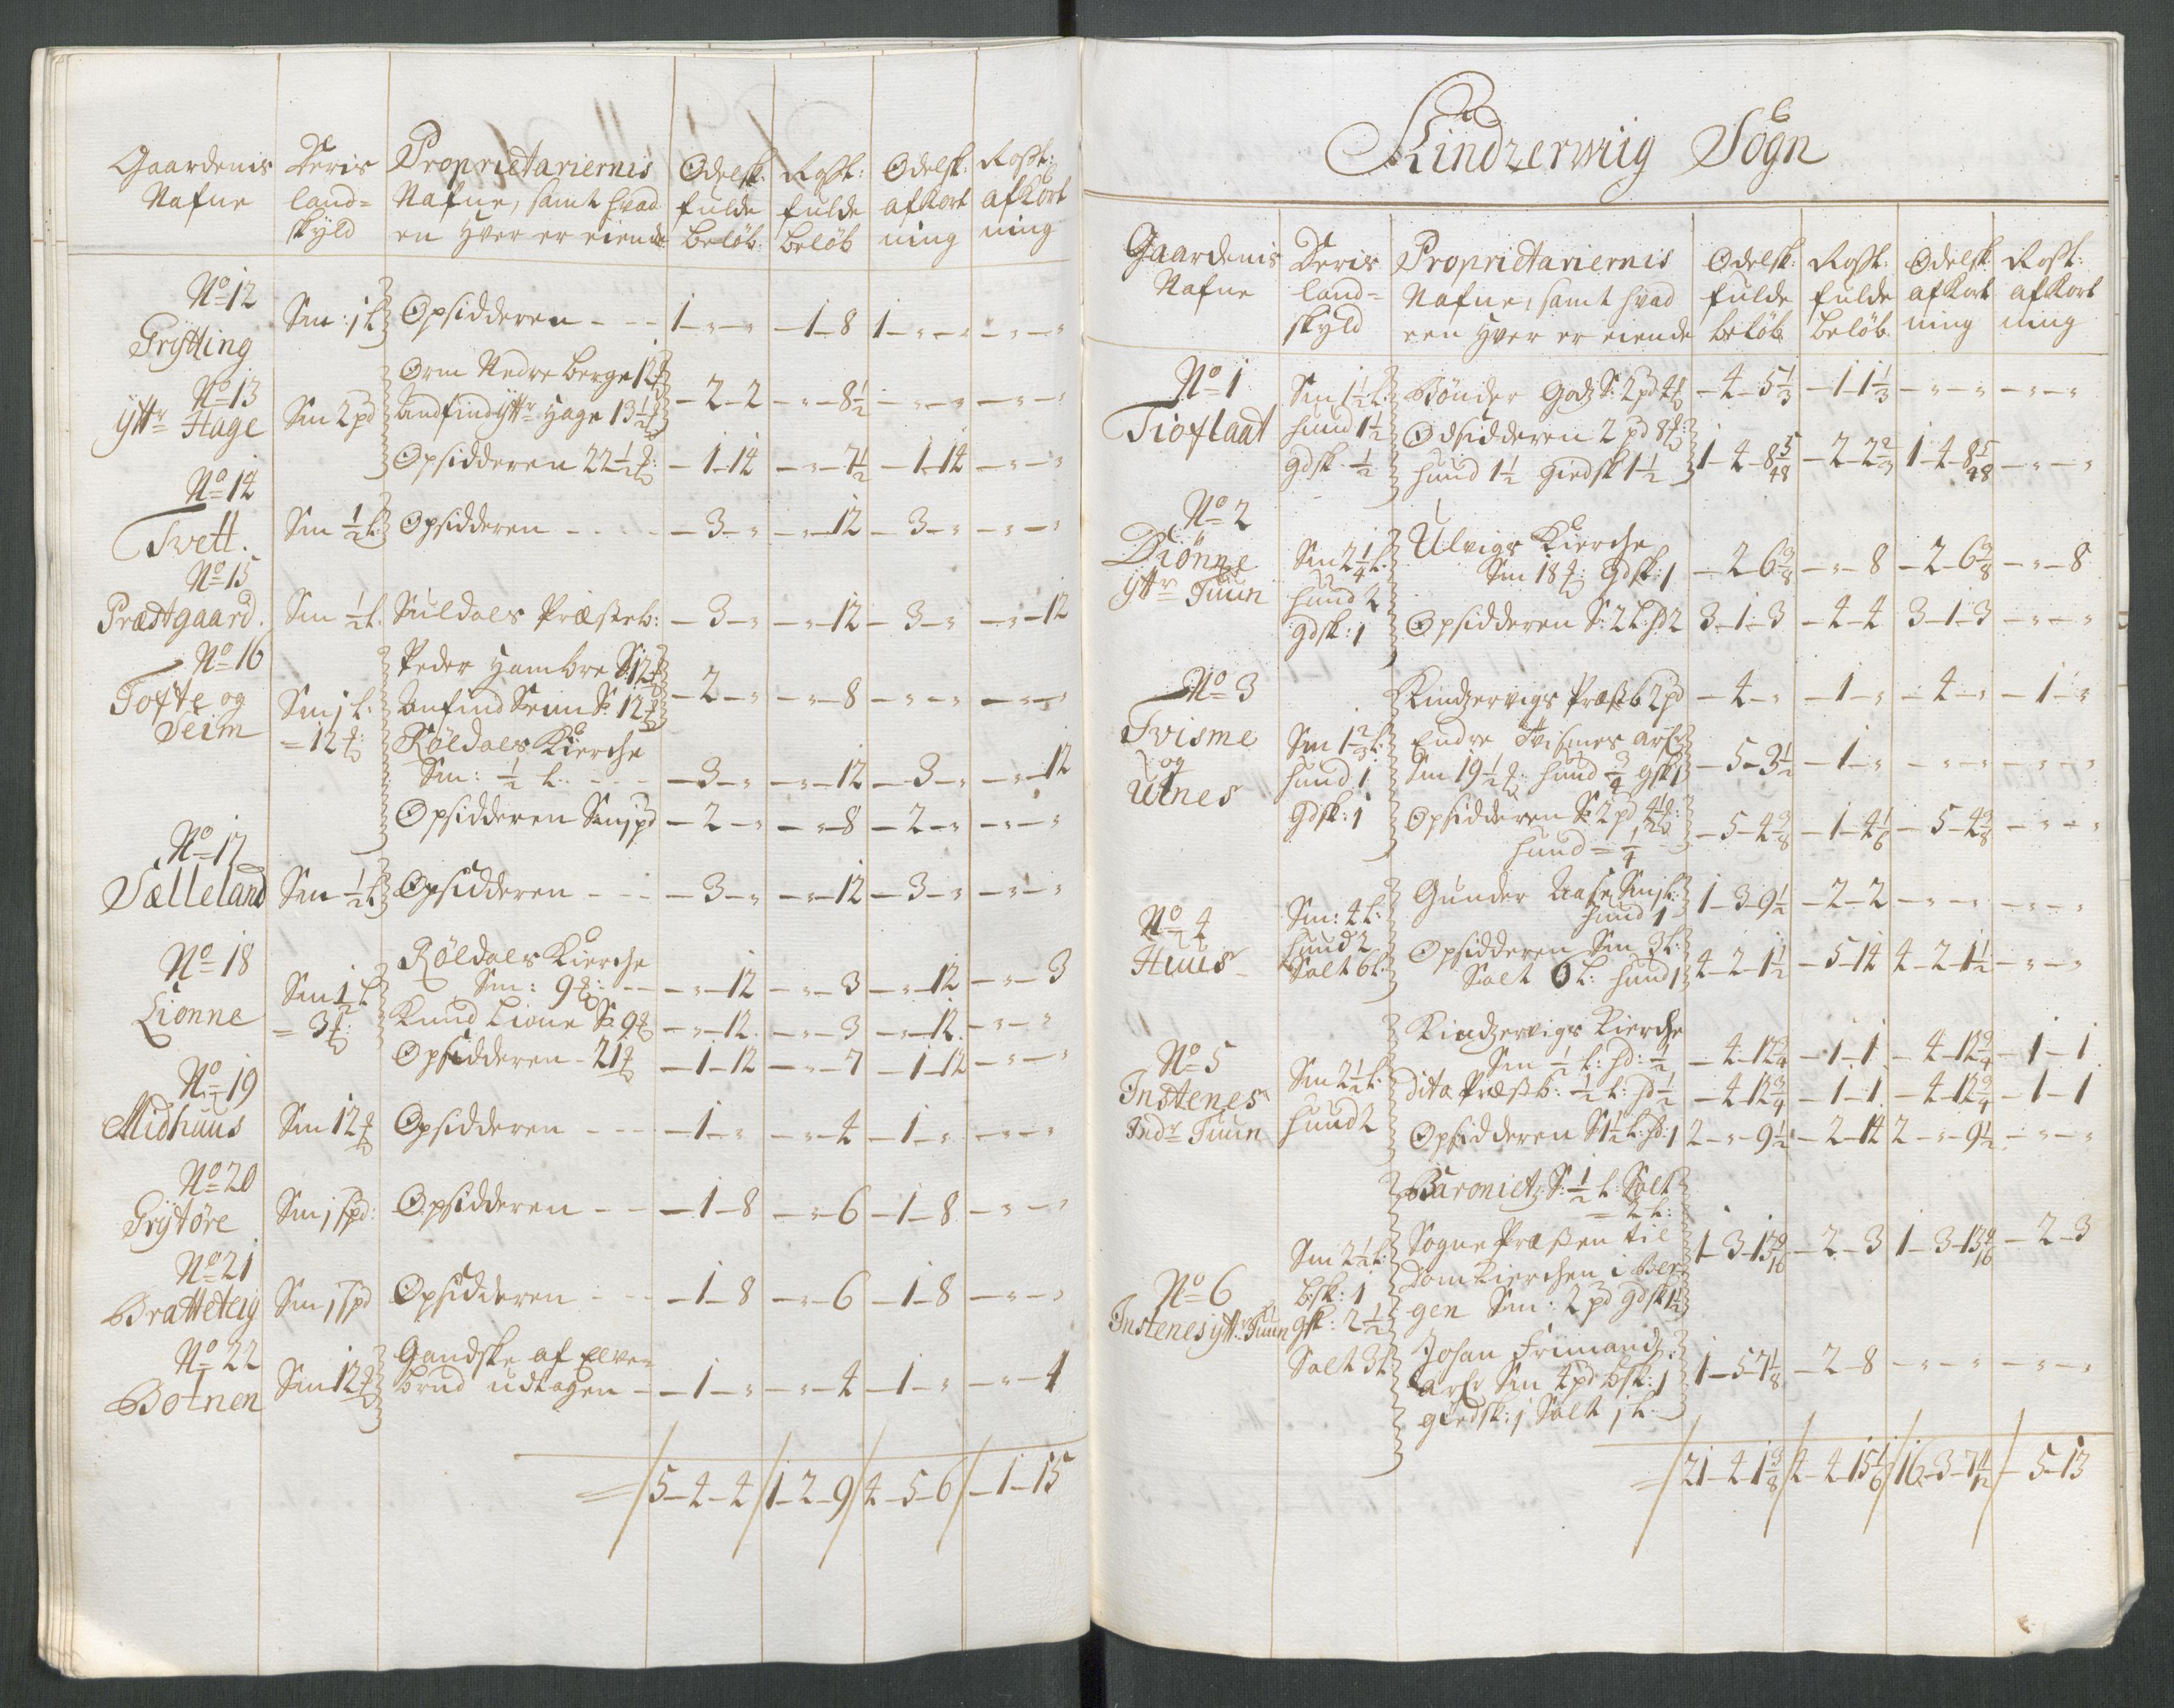 Gaardenis Nafne | Deris land= skyld | Proprietariernis Nafne, samt hvad en hver er eiende | Odelsk: fulde beløb: | Rossk: fulde beløb | Odelsk: afkort ning | Rossk: afkort ning
No 12 Grytting | Sm: 1 L | Opsidderen - - - | 1 - " - " | - 1 - 8 | 1 - " - " | - " - "
No 13 Yttr Hage | Sm 2 pd | Orm Nedre berge 12
Andfind yttr Hage 13½ | - 2 - 2 | - " - 8½ | - " - " | - " - "
Opsidderen 22½ | - 1 - 14 | - " - 7½ | - 1 - 14 | - " - "
No 14 Tvett. | Sm ½ L: | Opsidderen - - - | - 3 - " | - " - 12 | - 3 - " | - " - "
No 15 Præstgaard. | Sm ½ L. | Suldals Præsteb: | - 3 - " | - " - 12 | - 3 - " | - " - 12
No 16 Tofte og Seim | Sm 1 L: = 12 | Peder Hambre S: 12
Anfind Seim S: 12 | - 2 - " | - " - 8 | - " - " | - " - "
Röldals Kierche
Sm: ½ L: - - - | - 3 - " | - " - 12 | - 3 - " | - " - 12
Opsidderen Sm 1 pd | - 2 - " | - " - 8 | - 2 - " | - " - "
No 17 Sælleland | Sm ½ L | Opsidderen - - - | - 3 - " | - " - 12 | - 3 - " | - " - "
No 18 Lionne | Sm ½ L = 3 | Röldals Kierche
Sm: 9 - - | - " - 12 | - " - 3 | - " - 12 | - " - 3
Knud Lione S: 9 | - " - 12. | - " - 3 | - " - 12. | - " - "
Opsidderen - 21 | - 1 - 12 | - " - 7 | - 1 - 12 | - " - "
No 19 Midhuus | Sm 12 | Opsidderen - - - | - 1 - " | - " - 4 | - 1 - " | - " - "
No 20 Grytøre | Sm 1 spd: | Opsidderen - - | - 1 - 8 | - " - 6 | - 1 - 8 | - " - "
No 21 Bratteteig | Sm 1 spd | Opsidderen - - | - 1 - 8 | - " - 6 | - 1 - 8 | - " - "
No 22 Botnen | Sm 12 | Gandske af Elve=
brud udtagen - | - 1 - " | - " - 4 | - 1 - " | - " - 4
= / 5 - 4 - 4 / 1 - 2 - 9 / 4 - 5 - 6 / - 1 - 15
Kindzerwiig Sogn
Gaardenis Nafne | Deris land= skyld | Proprietariernis Nafne, samt hvad een hver er eiende | Odelsk: fulde beløb | Rossk: fulde beløb | Odelsk: afkort ning | Rossk: afkort ning
No 1 Tioflaat | Sm 1½ L: hund 1½ gdsk ½ | Bønder Godz S: 2 pd 4 | - 4 - 5⅓ | - 1 - 1⅓ | - " - " | - " - "
Odsidderen 2 pd 8
hund 1½ giedsk 1½ | 1 - 4 - 8 5/48 | - 2 - 2⅔ | 1 - 4 - 8 5/48 | - " - "
No 2 Diønne yttr Tuun | Sm 2¼ L: hund 2 gdsk: 1 | Ulvigs Kierche
Sm 18 gdsk: 1 | - 2 - 6⅜ | - " - 8 | - 2 - 6⅜ | - " - 8
Opsidderen S: 2 L: hd 2 | 3 - 1 - 3 | - 4 - 4 | 3 - 1 - 3 | - " - "
No 3 Tvisme og Utnes | Sm 1⅔ L: hund 1 gdsk: 1 | Kindzervigs Præstb 2 pd | - 4 - " | - 1 - " | - 4 - " | - 1 - "
Endre Tvismes arf:
Sm 19½ hund ¾ gsk 1 | - 5 - 3½ | - 1 - " | - " - " | - " - "
Opsidderen S: 2 pd 4½
hund = ¼ | - 5 - 4⅜ | - 1 - 4⅙ | - 5 - 4⅜ | - " - "
No 4 Huus | Sm: 4 L: hund 2 Salt 6 L. | Gunder Aase Sm 1 L:
hund 1 | 1 - 3 - 9½ | - 2 - 2 | - " - " | - " - "
Opsidderen Sm 3 L:
Salt 6 L: hund 1 | 4 - 2 - 1½ | - 5 - 14 | 4 - 2 - 1½ | - " - "
No 5 Instenes Indr Tuun | Sm 2½ L: hund 2 | Kindzervigs Kierche
Sm ½ L: hd: ½ | - 4 - 12¾ | - 1 - 1 | - 4 - 12¾ | - 1 - 1
dito Præstb: ½ L: hd ½ | - 4 - 12¾ | - 1 - 1 | - 4 - 12¾ | - 1 - 1
Opsidderen S 1½ L: hd: 1 | 2 - " - 9½ | - 2 - 14 | 2 - " - 9½ | - " - "
No 6 Instenes yttr Tuun | Sm 2½ L: bsk: 1 gsk: 2½ Salt 3 L | Baroniet S: ½ L: Salt
= 2 L:
Sogne Præsten til
Domkierchen i Ber
gen Sm: 2 pd gdsk 1½ | 1 - 3 - 13 | - 2 - 3 | 1 - 3 - 13 | - 2 - 3
Johan Frimandz
arf: Sm 4 pd bsk: 1
giedsk: 1 Salt 1 L. | 1 - 5 - 7⅛ | - 2 - 8 | - " - " | - " - "
= / 21 - 4 - 1⅜ / 4 - 4 - 15⅙ / 16 - 3 - 7 / - 5 - 13